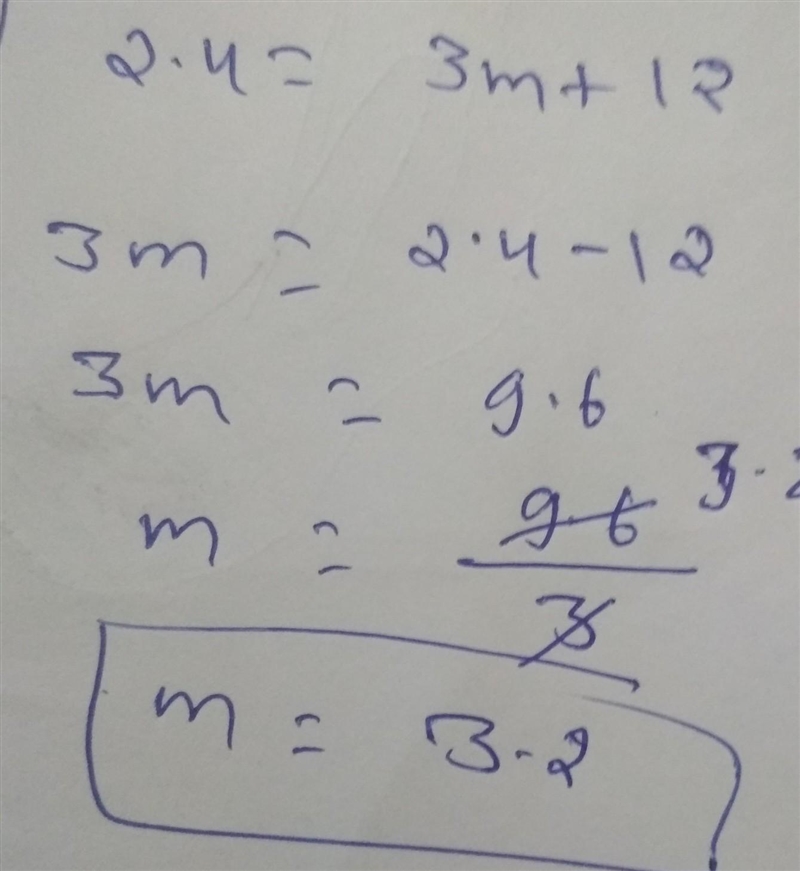 2.4 = 3m + 12
3m = 2.4 - 12
3m = 9.6
m = 9.6 / 3 3.2
m = 3.2